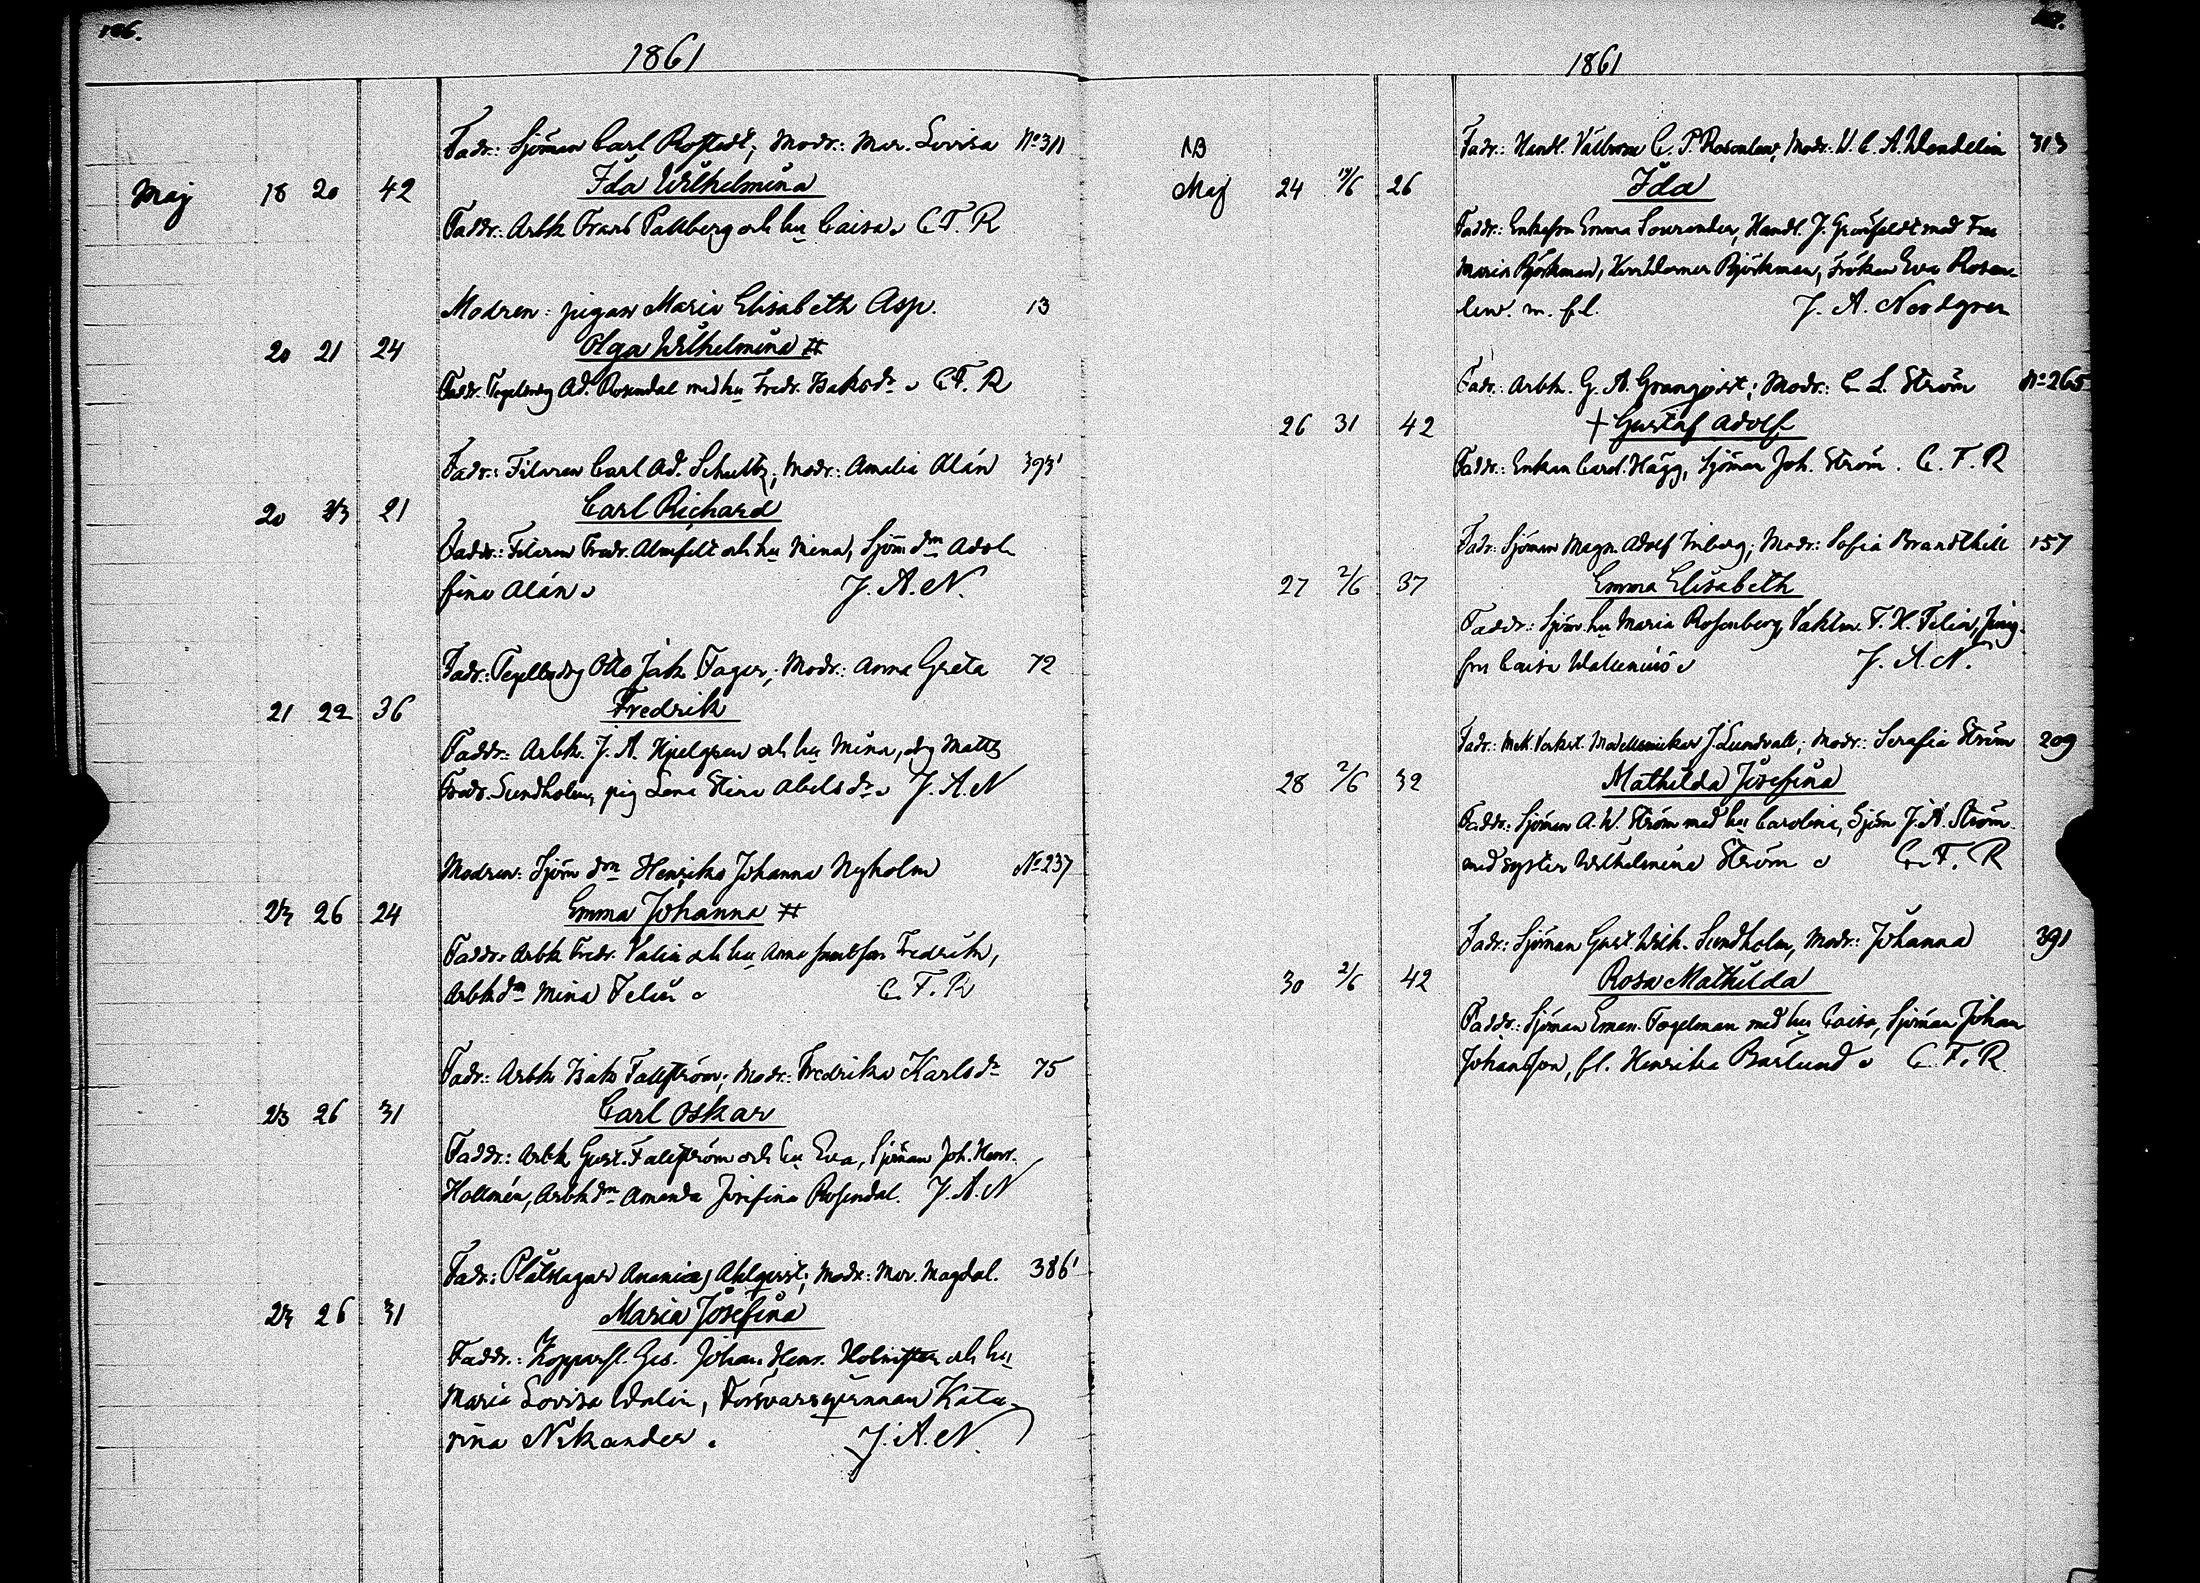 106.
1861
Fadr: Sjöman Carl Rostedt; Modr: Mar. Lovisa No 311
Maj 18 20 42 Ida Wilhelmina
Faddr: Arbk Frans Pallberg och hu Caisa. C. F. R
Modren: pigan Maria Elisabeth Asp. 13
20 21 24 Olga Wilhelmina #
Faddr: Ad. Rosendal med hu Fredr. Isaksdr. C. F. R
Fadr: Filaren Carl Ad. Schultz; Modr: Amalia Alán 393'
20 23 21 Carl Richard
Faddr: Filaren Fredr. Almfelt och hu Mina, Sjöm dm Adol
fina Alán. J. A. N.
Fadr: Otto Jak Fager; Modr: Anna Greta 72
21 22 36 Fredrik
Faddr: Arbk. J. A. Hjelgren och hu Mina, dg Matts
Fredr. Sundholm, pig Lena Stina Abelsdr. J. A. N
Modren: Sjöm dm Henrika Johanna Nyholm No 237
23 26 24 Emma Johanna #
Faddr: Arbk Fredr. Valin och hu Anna Fredrik,
Arbk dm Mina Felin. C. F. R
Fadr: Arbk Isak Fallström; Modr: Fredrika Karlsdr 75
23 26 31 Carl Oskar
Faddr: Arbk Gust. Fallström och hu Eva, Sjöman Joh. Henr.
Hollmén, Arbk dm Amanda Josefina Rosendal. J. A. N
Fadr: Plåtslagare Ananias Ahlqvist; Modr: Mar. Magdal. 386'
23 26 31 Maria Josefina
Faddr: Kopparsl. Ges. Johan Henr. Holmsten och hu
Maria Lovisa Walin, Försvarsqvinnan Kata-
rina Nikander. J. A. N
1861
NB Fadr: Handl. Välborne C. P. Rosenlew, Modr: W. C. A. Wendelin 313
Maj 24 19/6 26 Ida
Faddr: Enkefru Emma Sourander, Handl. J. Grönfeldt med Fru
Maria Björkman, Herr Werner Björkman, Fröken Eva Rosen-
lew. m. fl. J. A. Nordgren
Fadr: Arbk. G. A. Granqvist; Modr: C. L. Ström No 265
26 31 42 + Gustaf Adolf
Faddr: Enkan Carol. Hägg, Sjöman Joh. Ström. C. F. R
Fadr: Sjöman Magn. Adolf Inberg; Modr: Sofia Brandthill 157
27 2/6 37 Emma Elisabeth
Faddr: Sjöm. hu Maria Rosenberg, Vaktm. F. H. Felin, Jung-
fru Caisa Wallenius. J. A. N.
Fadr: Mek. Verkst. Modellsnickar J. Lundvall; Modr: Serafia Ström 209
28 2/6 32 Mathilda Josefina
Faddr: Sjöman A. W. Ström med hu Carolina, Sjöm J. A. Ström
med syster Wilhelmina Ström. C. F. R
Fadr: Sjöman Gust. Wilh. Sundholm, Modr: Johanna 391
30 2/6 42 Rosa Mathilda
Faddr: Sjöman Eman. Fogelman med hu Caisa, Sjöman Johan
Johansson, fl. Henrika Barlund. C. F. R